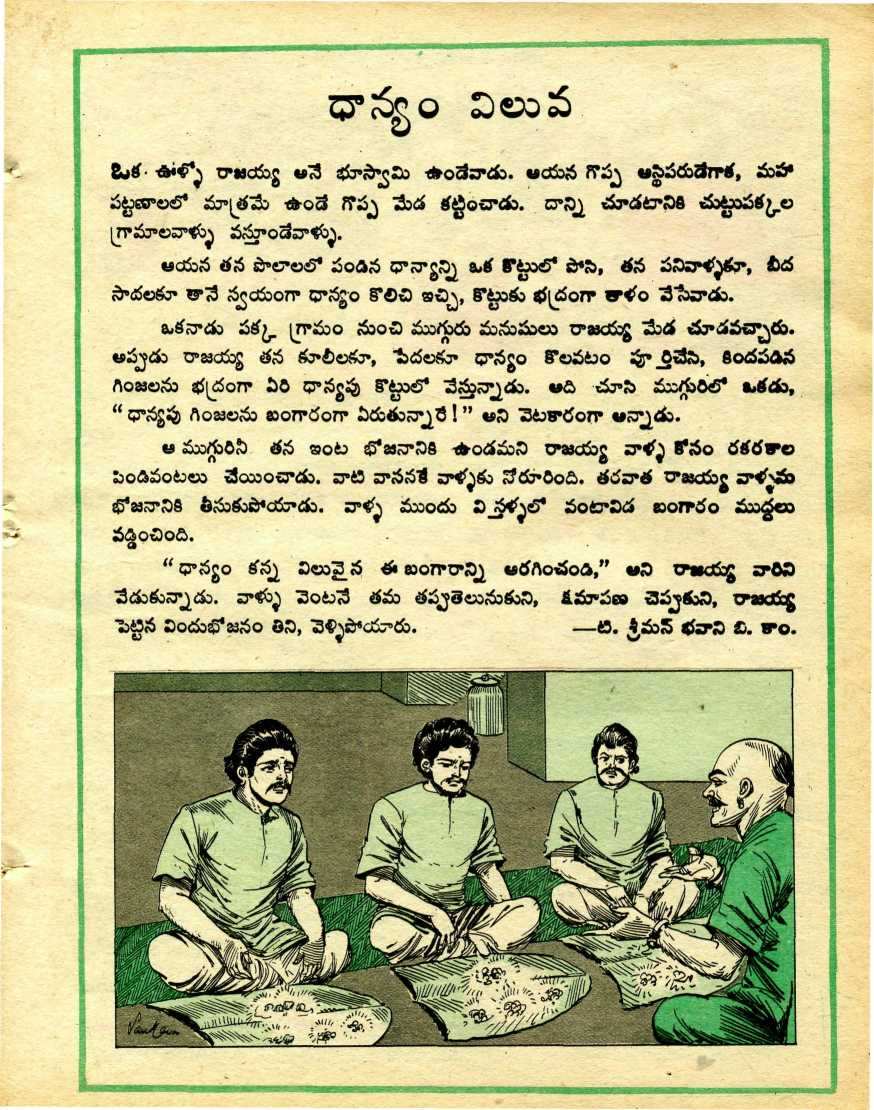 ధాన్యం విలువ
ఒక ఊళ్ళో రాజయ్య అనే భూస్వామి ఉండేవాడు. ఆయన గొప్ప ఆస్థిపరుడేగాక, మహా
పట్టణాలలో మాత్రమే ఉండే గొప్ప మేడ కట్టించాడు. దాన్ని చూడటానికి చుట్టుపక్కల
గ్రామాలవాళ్ళు వస్తూండేవాళ్ళు.
ఆయన తన పొలాలలో పండిన ధాన్యాన్ని ఒక కొట్టులో పోసి, తన పనివాళ్ళకూ, బీద
సాదలకూ తానే స్వయంగా ధాన్యం కొలిచి ఇచ్చి, కొట్టుకు భద్రంగా తాళం వేసేవాడు.
ఒకనాడు పక్క గ్రామం నుంచి ముగ్గురు మనుషులు రాజయ్య మేడ చూడవచ్చారు.
అప్పడు రాజయ్య తన కూలీలకూ, పేదలకూ ధాన్యం కొలవటం పూర్తిచేసి, కిందపడిన
గింజలను భద్రంగా ఏరి ధాన్యపు కొట్టులో వేస్తున్నాడు. అది చూసి ముగ్గురిలో ఒకడు,
“ ధాన్యపు గింజలను బంగారంగా ఏరుతున్నారే! ” అని వెటకారంగా అన్నాడు.
ఆ ముగ్గురినీ తన ఇంట భోజనానికి ఉండమని రాజయ్య వాళ్ళ కోసం రకరకాల
పిండివంటలు చేయించాడు. వాటి వాసనకే వాళ్ళకు నోరూరింది. తరవాత రాజయ్య వాళ్ళను
భోజనానికి తీసుకుపోయాడు. వాళ్ళ ముందు విస్తళ్ళలో వంటావిడ బంగారం ముద్దలు
వడ్డించింది.
“ ధాన్యం కన్న విలువైన ఈ బంగారాన్ని ఆరగించండి,” అని రాజయ్య వారిని
వేడుకున్నాడు. వాళ్ళు వెంటనే తమ తప్పుతెలుసుకుని, క్షమాపణ చెప్పుకుని, రాజయ్య
పెట్టిన విందుభోజనం తిని, వెళ్ళిపోయారు. —టి. శ్రీమన్ భవాని బి. కాం.